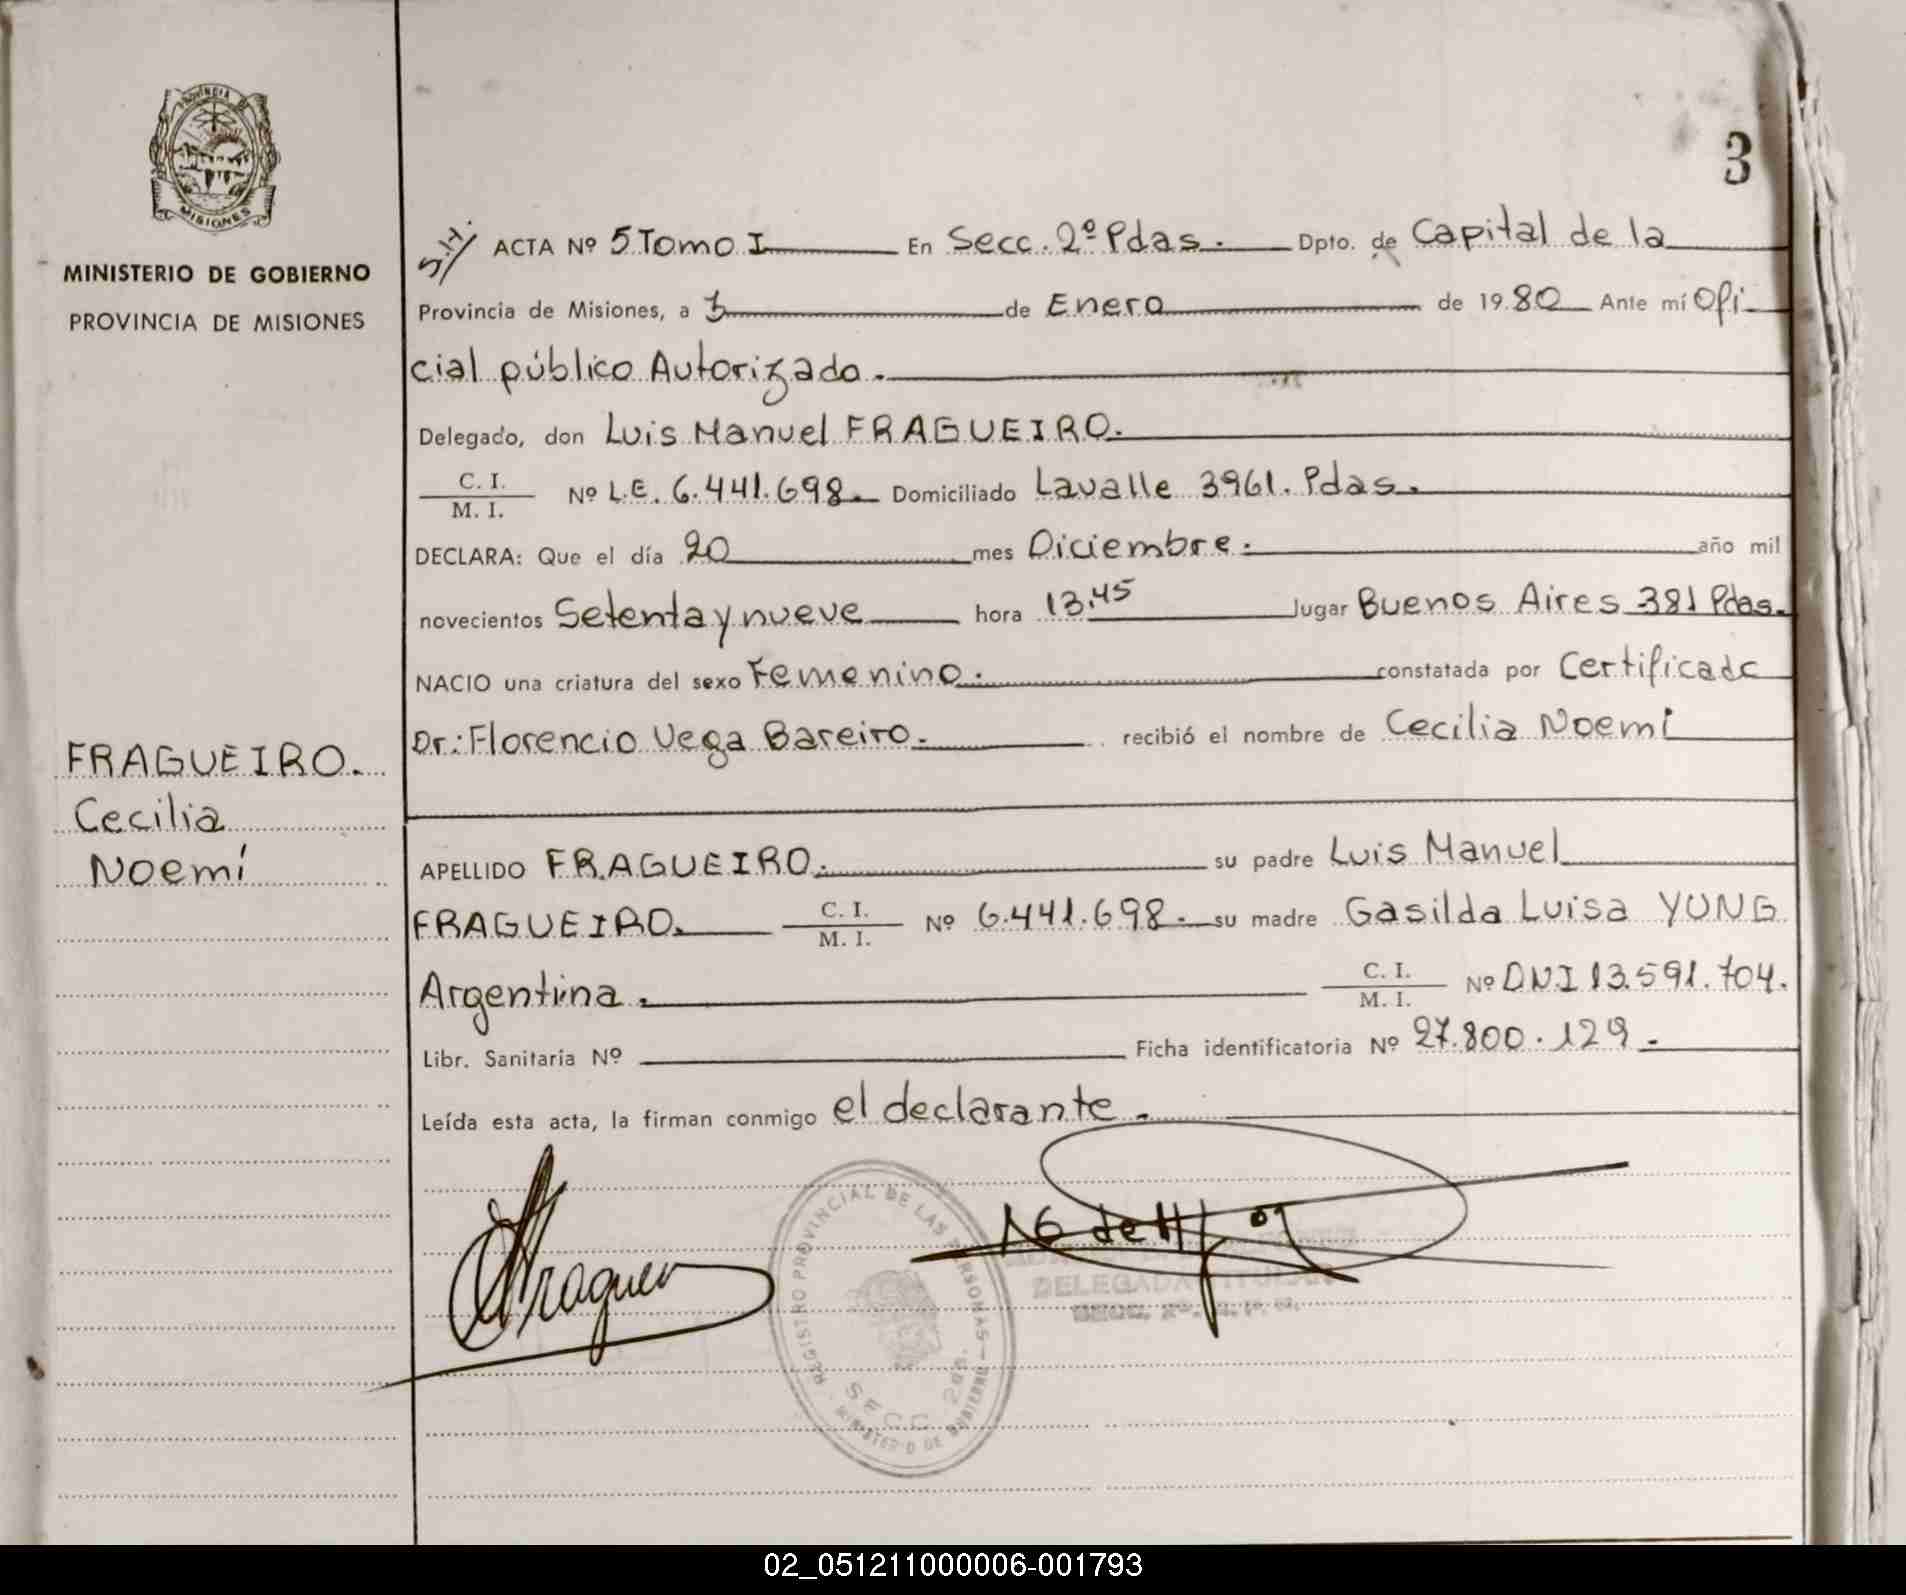 PROVINCIA DE
MISIONES
MINISTERIO DE GOBIERNO
PROVINCIA DE MISIONES
FRAGUEIRO.
Cecilia
Noemí
3
S/H. ACTA Nº 5 Tomo I En Secc. 2º Pdas. Dpto. de Capital de la
Provincia de Misiones, a 3 de Enero de 19 80 Ante mí Ofi
cial público Autorizado.
Delegado, don Luis Manuel FRAGUEIRO.
C. I.
M. I.
Nº L.E. 6.441.698. Domiciliado Lavalle 3961. Pdas.
DECLARA: Que el día 20 mes Diciembre. año mil
novecientos Setenta y nueve hora 13.45 lugar Buenos Aires 381 Pdas.
NACIO una criatura del sexo Femenino. constatada por Certificado
Dr: Florencio Vega Bareiro. recibió el nombre de Cecilia Noemí
APELLIDO FRAGUEIRO. su padre Luis Manuel
FRAGUEIRO. C. I.
M. I.
Nº 6.441.698. su madre Gasilda Luisa YUNG
Argentina. C. I.
M. I.
Nº DNI 13.591.704.
Libr. Sanitaria Nº Ficha identificatoria Nº 27.800.129.
Leída esta acta, la firman conmigo el declarante.
REGISTRO PROVINCIAL DE LAS PERSONAS - MINISTERIO DE GOBIERNO
SECC. 2da.
DELEGADA TITULAR
02_051211000006-001793